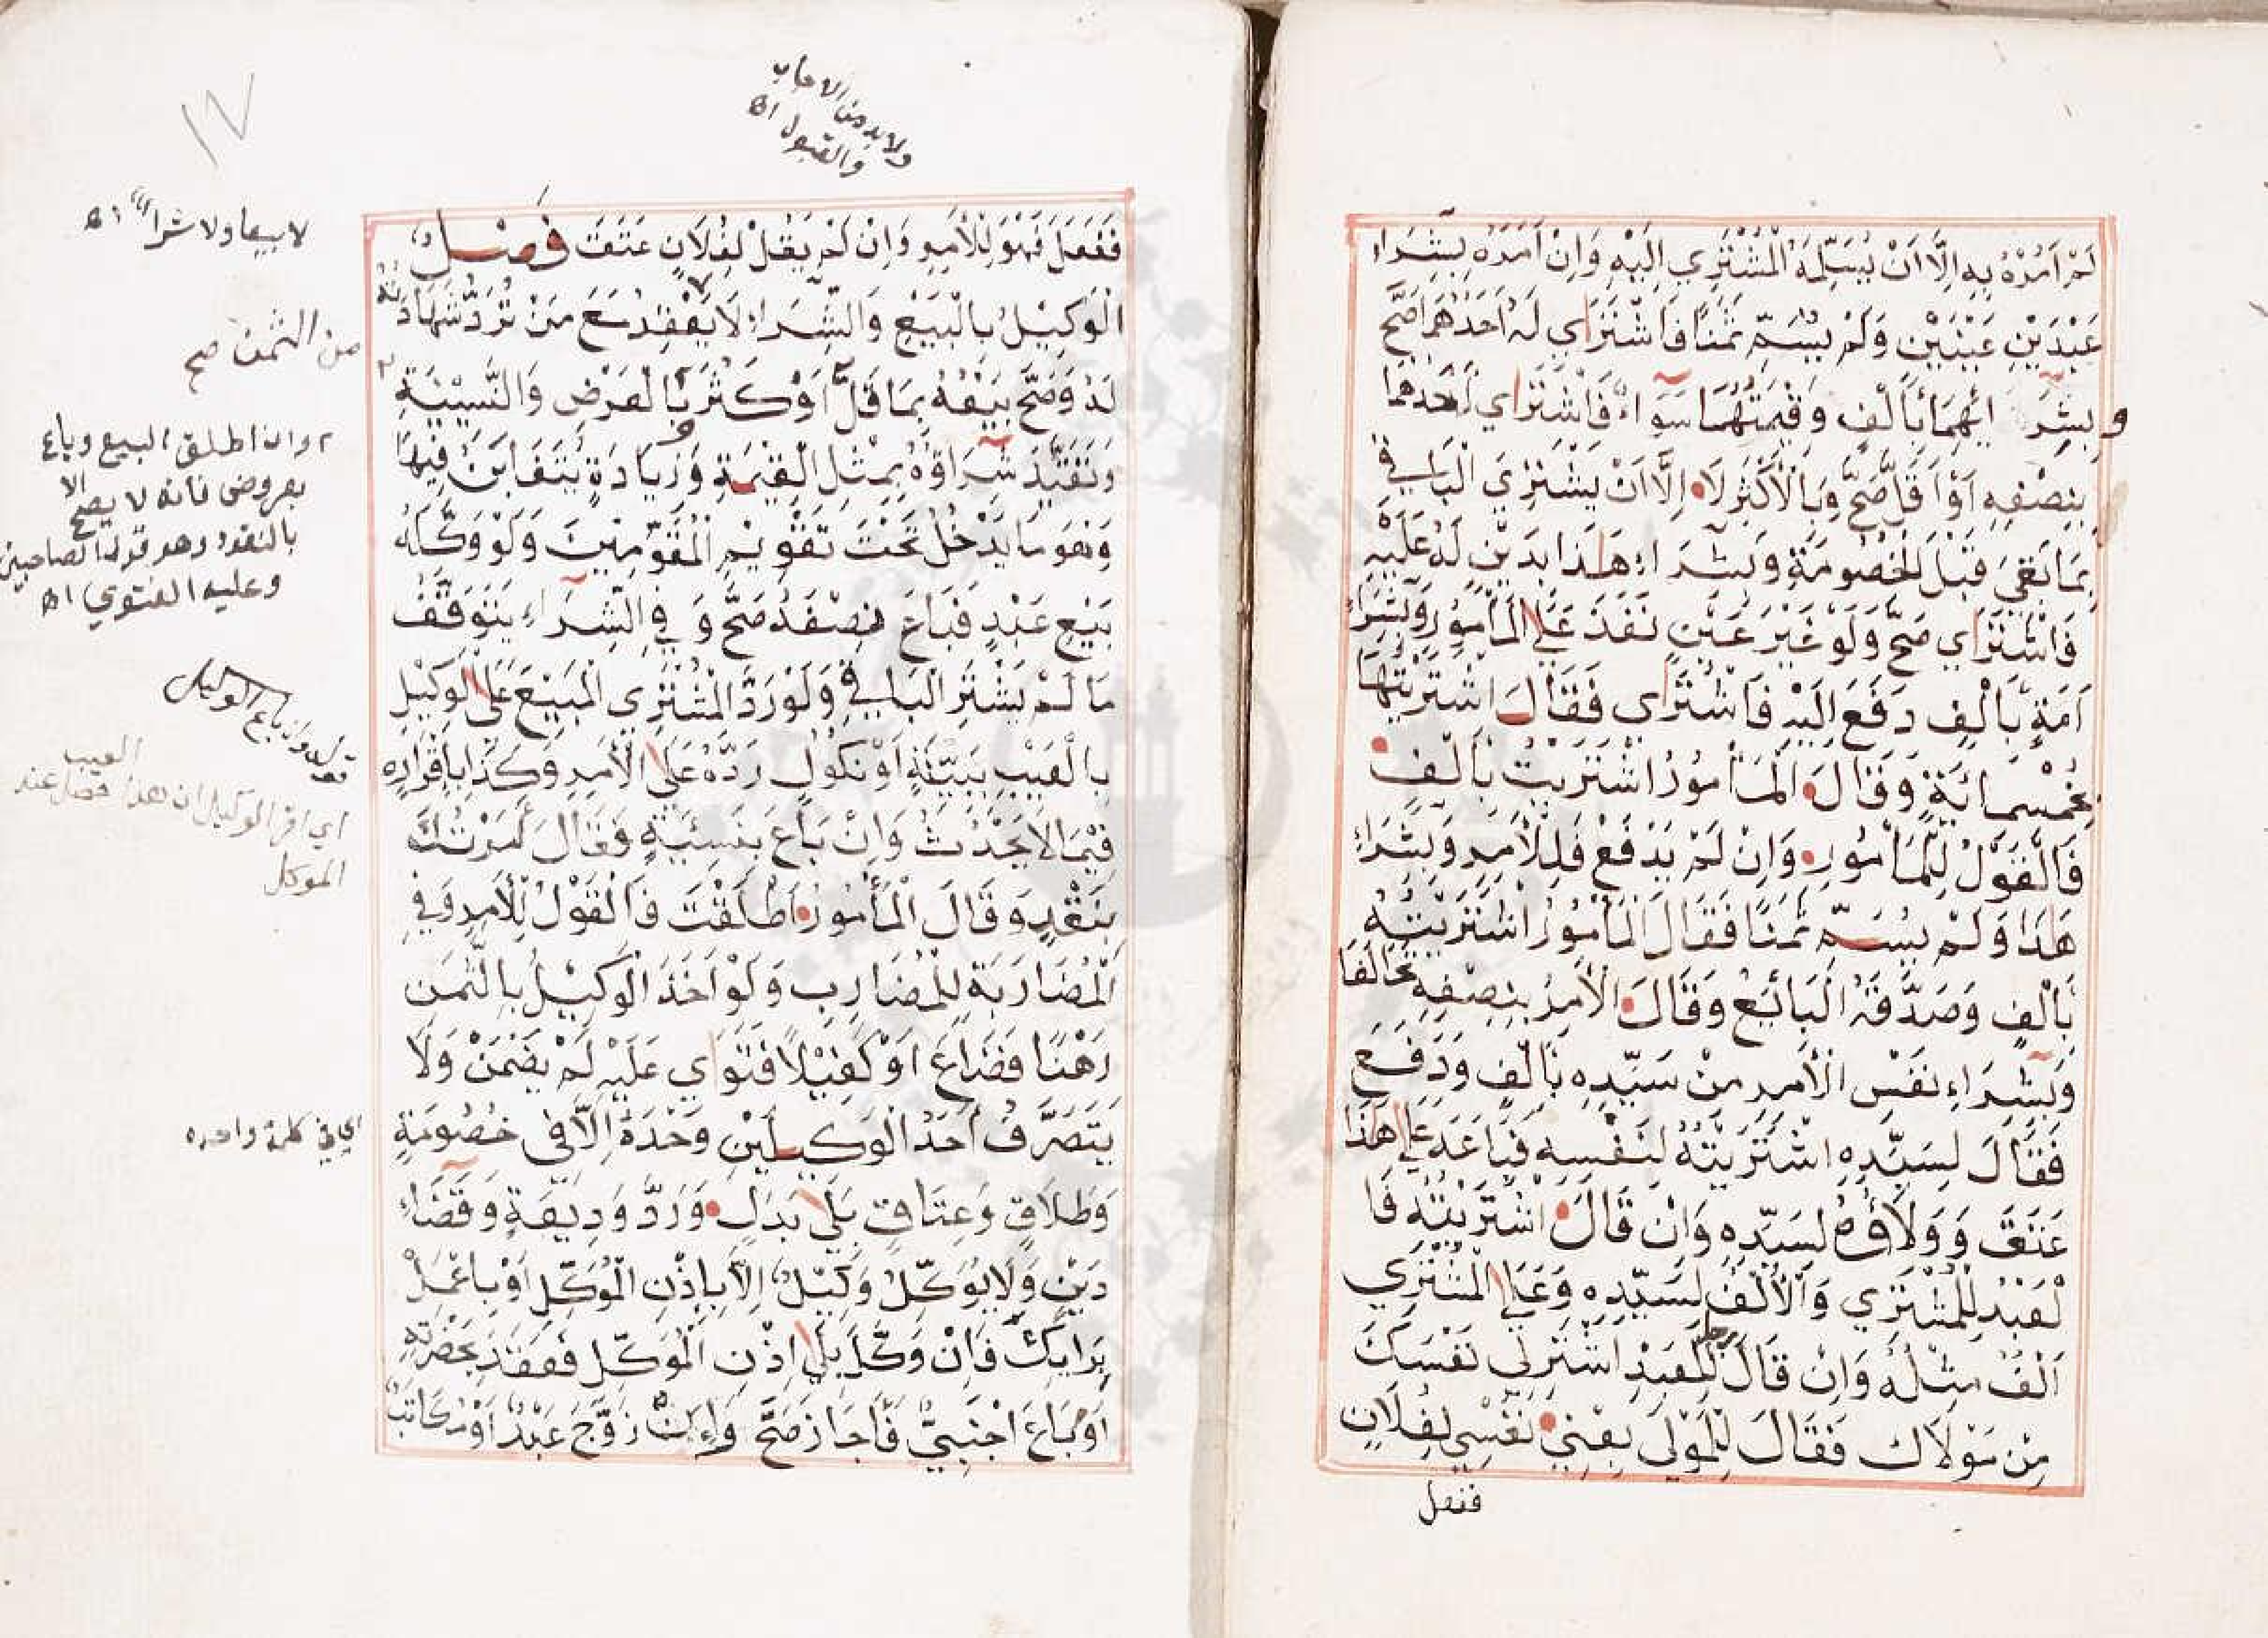 لَمْ اٰمُرْهُ بِهِ اِلَّا اَنْ يُسَلِّمَهُ الْمُشْتَرِي اِلَيْهِ وَاِنْ اَمَرَهُ بِشِرَاءِ
عَبْدَيْنِ عَيْنَيْنِ وَلَمْ يُسَمِّ ثَمَنًا فَاشْتَرَاي لَهُ اَحَدَهُمَا صَحَّ
وبِشِرَائِهِمَا بِاَلْفٍ وَقِيْمَتُهُمَا سَوَاءٌ فَاشْتَرَاي اَحَدَهُمَا
بِنِصْفِهِ اَوْ اَقَلَّ صَحَّ وَبِالْاَكْثَرِ لَا اِلَّا اَنْ يَشْتَرِيَ الْبَاقِي
بِمَا بَقِيَ قَبْلَ الْخُصُومَةِ وَبِشِرَاءِ هٰذَا بِدَيْنٍ لَهُ عَلَيْهِ
فَاشْتَرَاي صَحَّ وَلَوْ غَيْرَ عَيْنٍ نَفَذَ عَلَى الْمَاْمُوْرِ وَبِشِرَاءِ
اَمَةٍ بِاَلْفٍ دَفَعَ اِلَيْهِ فَاشْتَرَاي فَقَالَ اشْتَرَيْتَهَا
بِخَمْسِمَائَةٍ وَقَالَ الْمَاْمُوْرُ اشْتَرَيْتُ بِاَلْفٍ
فَالْقَوْلُ لِلْمَاْمُوْرِ وَاِنْ لَمْ يَدْفَعْ فَلِلْاٰمِرِ وَبِشِرَاءِ
هٰذَا وَلَمْ يُسَمِّ ثَمَنًا فَقَالَ الْمَاْمُوْرُ اشْتَرَيْتُهُ
بِاَلْفٍ وَصَدَّقَهُ الْبَائِعُ وَقَالَ الْاٰمِرُ بِنِصْفِهِ تَحَالَفَا
وَبِشِرَاءِ نَفْسِ الْاٰمِرِ مِنْ سَيِّدِهِ بِاَلْفٍ وَدَفَعَ
فَقَالَ لِسَيِّدِهِ اشْتَرَيْتُهُ لِنَفْسِهِ فَبَاعَهُ عَلَى هٰذَا
عَتَقَ وَوَلَاؤُهُ لِسَيِّدِهِ وَاِنْ قَالَ اشْتَرَيْتُهُ فَا
لْعَبْدُ لِلْمُشْتَرِي وَالْاَلْفُ لِسَيِّدِهِ وَعَلَى الْمُشْتَرِي
اَلْفٌ مِثْلُهُ وَاِنْ قَالَ رجل لِلْعَبْدِ اشْتَرِ لِي نَفْسَكَ
مِنْ مَوْلَاكَ فَقَالَ لِلْمَوْلَى بِعْنِي نَفْسِي لِفُلَانٍ
ففعل
١٧
ولابد من الايجاب
والقبول اه
فَفَعَلَ فَهُوَ لِلْاٰمِرِ وَاِنْ لَمْ يَقُلْ لِفُلَانٍ عَتَقَ فَصْلٌ
الْوَكِيْلُ بِالْبَيْعِ وَالشِّرَاءِ لَا يَعْقِدُ مَعَ مَنْ تُرَدُّ شَهَادَتُهُ
لَهُ وَصَحَّ بَيْعُهُ بِمَا قَلَّ اَوْ كَثُرَ بِالْعَرْضِ وَالنَّسِيْئَةِ
وَتَقَيَّدَ شِرَاؤُهُ بِمِثْلِ الْقِيْمَةِ وَزِيَادَةٍ يُتَغَابَنُ فِيْهَا
وَهُوَ مَا يَدْخُلُ تَحْتَ تَقْوِيْمِ الْمُقَوِّمِيْنَ وَلَوْ وَكَّلَهُ
بِبَيْعِ عَبْدٍ فَبَاعَ نِصْفَهُ صَحَّ وَفِي الشِّرَاءِ يَتَوَقَّفُ
مَا لَمْ يَشْتَرِ الْبَاقِي وَلَوْ رَدَّ الْمُشْتَرِي الْمَبِيْعَ عَلَى الْوَكِيْلِ
بِالْعَيْبِ بِبَيِّنَةٍ اَوْ نُكُوْلٍ رَدَّهُ عَلَى الْاٰمِرِ وَكَذَا بِاِقْرَارِهِ
فِيْمَا لَا يَحْدُثُ وَاِنْ بَاعَ بِنَسِيْئَةٍ فَقَالَ اَمَرْتُكَ
بِنَقْدٍ وَقَالَ الْمَأْمُوْرُ اَطْلَقْتَ فَالْقَوْلُ لِلْاٰمِرِ وَفِي
الْمُضَارَبَةِ لِلْمُضَارِبِ وَلَوْ اَخَذَ الْوَكِيْلُ بِالثَّمَنِ
رَهْنًا فَضَاعَ اَوْ كَفِيْلًا فَتَوَاي عَلَيْهِ لَمْ يَضْمَنْ وَلَا
يَتَصَرَّفُ اَحَدُ الْوَكِيْلَيْنِ وَحْدَهُ اِلَّا فِى خُصُومَةٍ
وَطَلَاقٍ وَعِتَاقٍ بِلَا بَدَلٍ وَرَدِّ وَدِيْعَةٍ وَقَضَاءِ
دَيْنٍ وَلَا يُوَكِّلُ وَكِيْلٌ اِلَّا بِاِذْنِ الْمُوَكِّلِ اَوْ بِاعْمَلْ
بِرَايِكَ فَاِنْ وَكَّلَ بِلَا اِذْنِ الْمُوَكِّلِ فَعَقَدَ بِحَضْرَتِهِ
اَوْ بَاعَ اَجْنَبِيٌّ فَاَجَازَ صَحَّ وَاِنْ زَوَّجَ عَبْدٌ اَوْ مُكَاتَبٌ
لا بيعا ولا شراء اه
من الثمن صح
٢ وان اطلق البيع وباع
بعروض فانه لا يصح الا
بالنقود وهو قول الصاحبين
وعليه الفتوي اه
قوله وان باع الوكيل
اي اقر الوكيل ان هذا العيب حصل عند
الموكل
اي في كلمة واحده